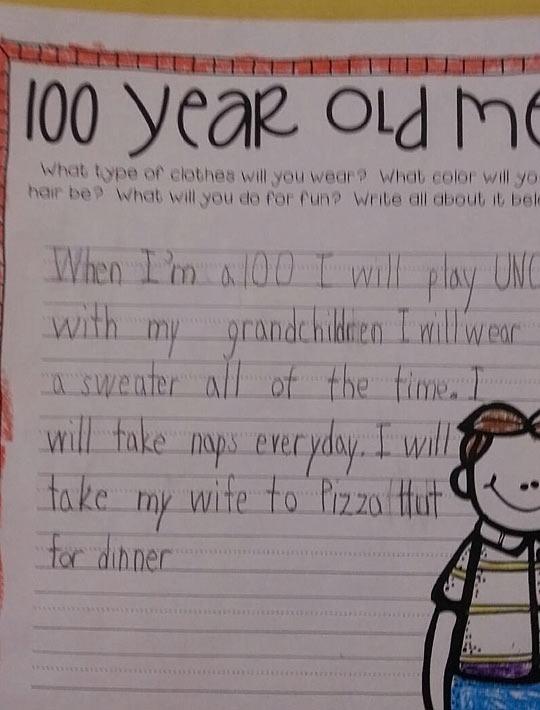 100 year old me
What type of clothes will you wear? What color will yo
hair be? What will you do for fun? Write all about it belo
When I'm a 100 I will play UNO
with my grandchildren I will wear
a sweater all of the time. I
will take naps everyday. I will
take my wife to Pizza Hut
for dinner